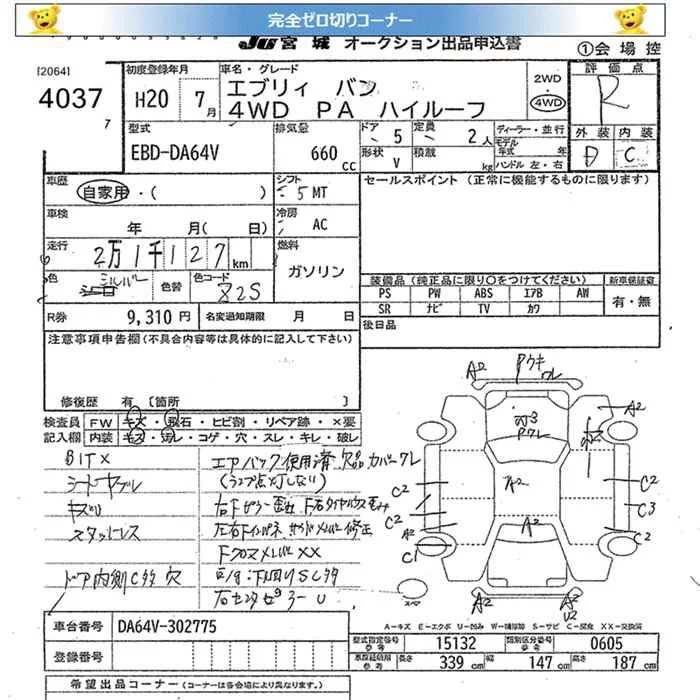 完全ゼロ切りコーナー
JU宮城 オークション出品申込書
①会場控
[2064]
4037
7
初度登録年月
H20 7月
車名・グレード
エブリィ バン
4WD PA ハイルーフ
2WD
・
4WD
評価点
R
外装 内装
D C
型式
EBD-DA64V
排気量
660cc
ドア 5
定員 2人
形状 V
積載 kg
ディーラー・並行
モデル年式 年
ハンドル 左・右
車歴
自家用・( )
シフト 5MT
セールスポイント (正常に機能するものに限ります)
車検 年 月( 日)
冷房 AC
走行 2万1千127km
燃料
ガソリン
色 シルバー
色替
色コード 82S
装備品 (純正品に限り○をつけてください)
新車保証書
PS PW ABS エアB AW
SR ナビ TV カワ
有・無
R券 9,310円
名変通知期限 月 日
後日品
注意事項申告欄(不具合内容等は具体的に記入して下さい)
修復歴 有 [箇所
検査員記入欄
FW キズ・飛石・ヒビ割・リペア跡・×要
内装 キズ・汚レ・コゲ・穴・スレ・キレ・破レ
シートヤブレ
キズ
スタットレス
ドア内側C多 穴
エアバック使用済 欠品カバークレ
(ランプ点灯しない)
FクロスメンバXX
下回りSC多
A2
A2
A2
A2
A2
C2
C2
A2
C1
C2
C3
C2
A2
A2
U2
スペア
A-キズ E-エクボ U-凹み W-補修跡 S-サビ C-腐食 XX-交換済
車台番号 DA64V-302775
登録番号
型式指定番号 参考 15132
類別区分番号 参考 0605
車両諸元用 参考
長さ 339cm
幅 147cm
高さ 187cm
希望出品コーナー (コーナーは各会場により異なります。)